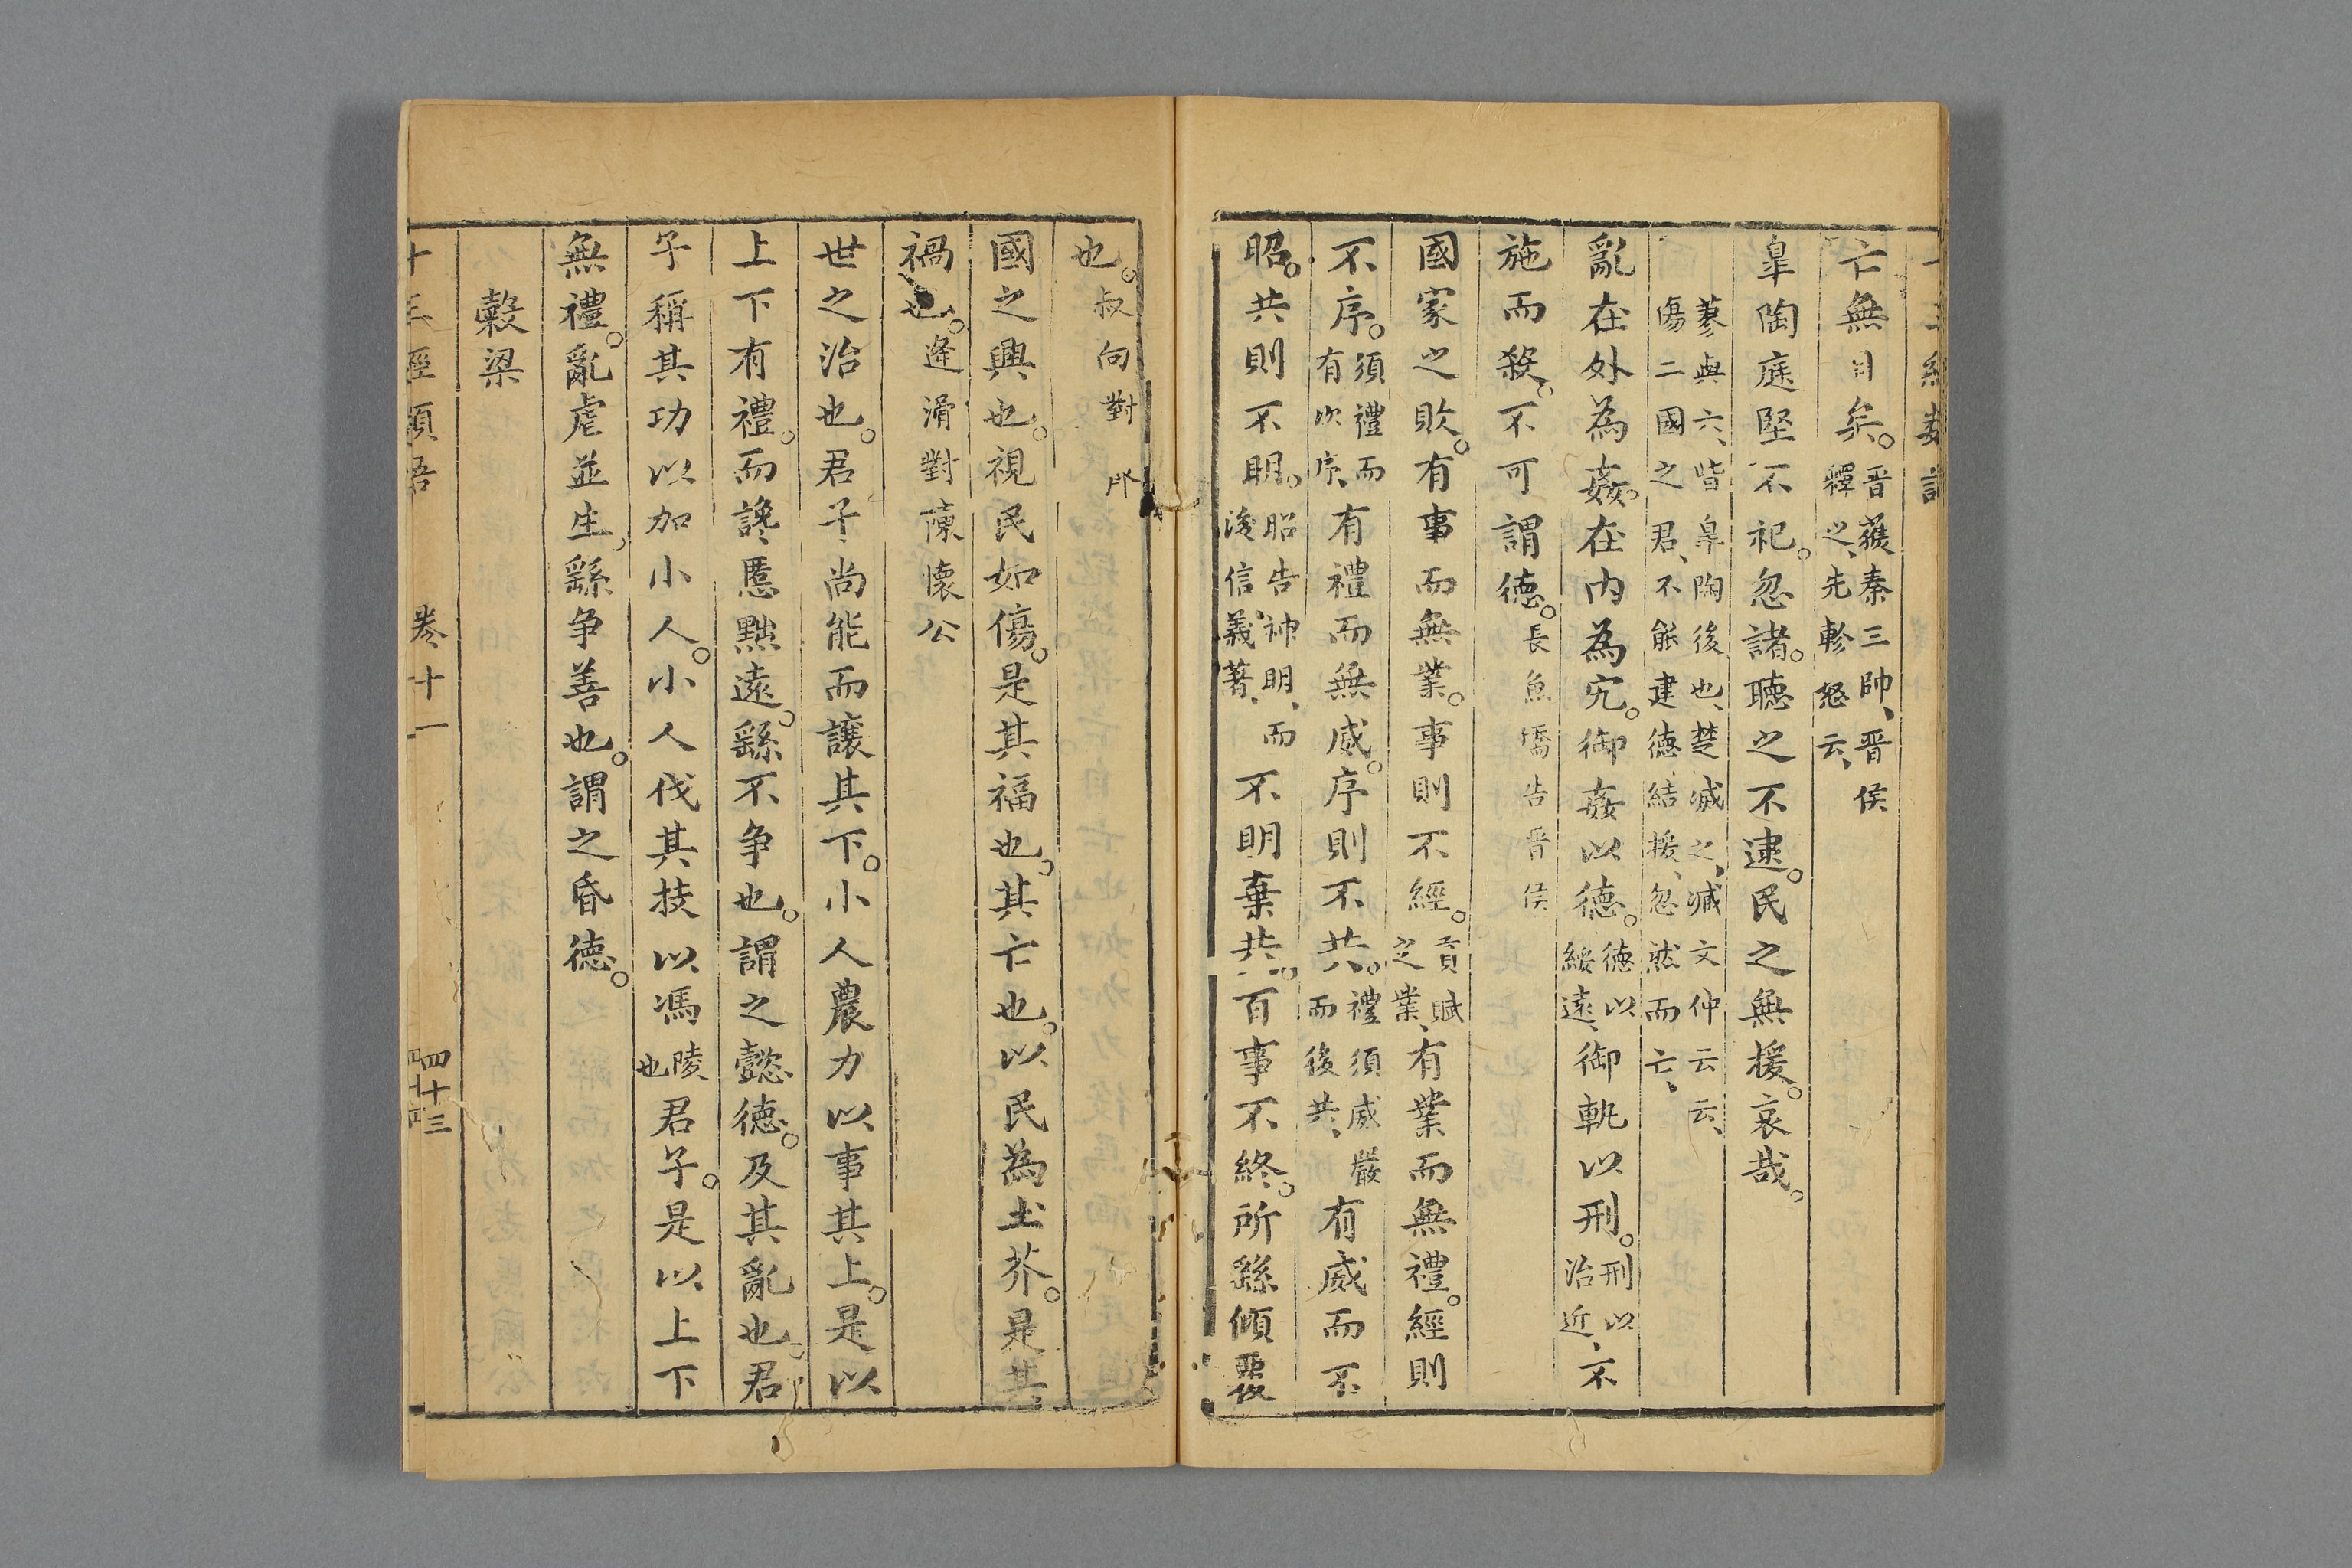 亡無日矣。晋獲秦三帥、晋侯釋之、先軫怒云、
皐陶庭堅不祀。忽諸。聽之不逮。民之無援。哀哉。
蓼與六、皆皐陶後也、楚滅之、臧文仲云云、傷二國之君、不能建德結援、忽然而亡、
亂在外為姦。在内為宄。御姦以德。德以綏遠、御軌以刑。刑以治近、不
施而殺。不可謂德。長魚矯告晋侯
國家之敗。有事而無業。事則不經。貢賦之業、有業而無禮。經則
不序。須禮而有次序、有禮而無威。序則不共。禮須威嚴而後共、有威而不
昭。共則不明。昭告神明、而後信義著、不明棄共。百事不終。所繇傾覆
也。叔向對
國之興也。視民如傷。是其福也。其亡也。以民為土芥。是其
禍也。逢滑對陳懷公
世之治也。君子尚能而讓其下。小人農力以事其上。是以
上下有禮。而讒慝黜遠。繇不争也。謂之懿德。及其亂也。君
子稱其功以加小人。小人伐其技以馮陵也君子。是以上下
無禮。亂虐並生。繇争善也。謂之昏德。
穀梁
卷十一 四十三